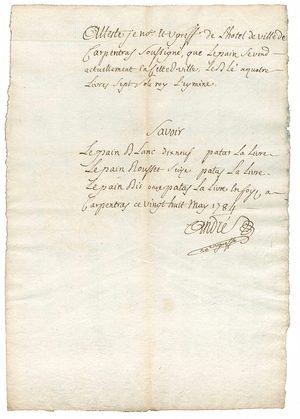 Atteste je not.re et greff.er de L'hotel de ville de
Carpentras Soussigné, que Le pain Se vend
actuellement en cette d. ville, Le Blé a quatre
Livres Sept Sols roy L'eymine.
Savoir
Le pain Blanc dix neuf patas La Livre.
Le pain Rousset Seize patas La Livre.
Le pain Bis onze patas La Livre En foy, a
Carpentras ce vingt huit May 1784
André